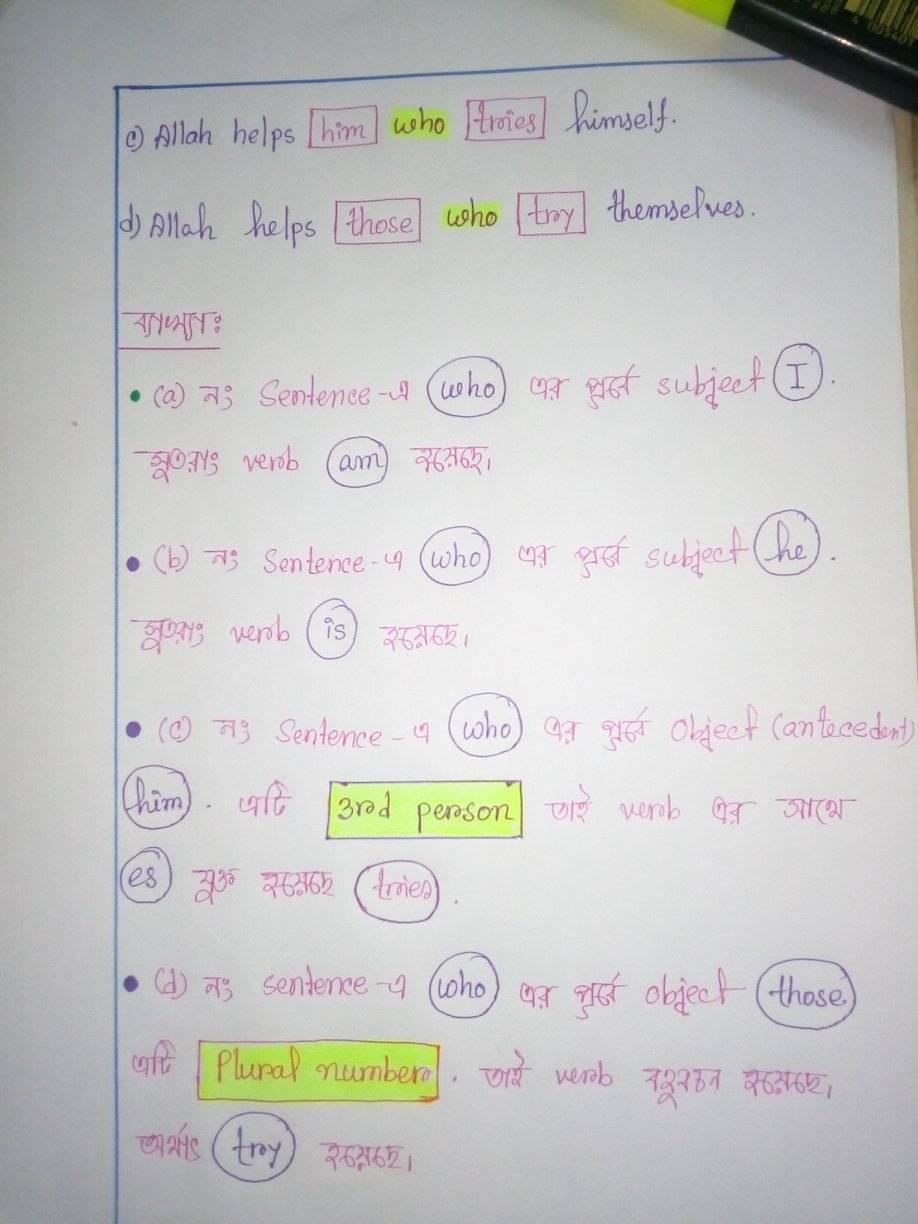 c) Allah helps him who tries himself.
d) Allah helps those who try themselves.
ব্যাখ্যাঃ
• (a) নং Sentence-এ who এর পূর্বে subject I.
সুতরাং verb am হয়েছে।
• (b) নং Sentence-এ who এর পূর্বে subject he.
সুতরাং verb is হয়েছে।
• (c) নং Sentence-এ who এর পূর্বে Object (antecedent)
him. এটি 3rd person তাই verb এর সাথে
es যুক্ত হয়েছে tries.
• (d) নং sentence-এ who এর পূর্বে object those
এটি Plural number. তাই verb বহুবচন হয়েছে,
অর্থাৎ try হয়েছে।